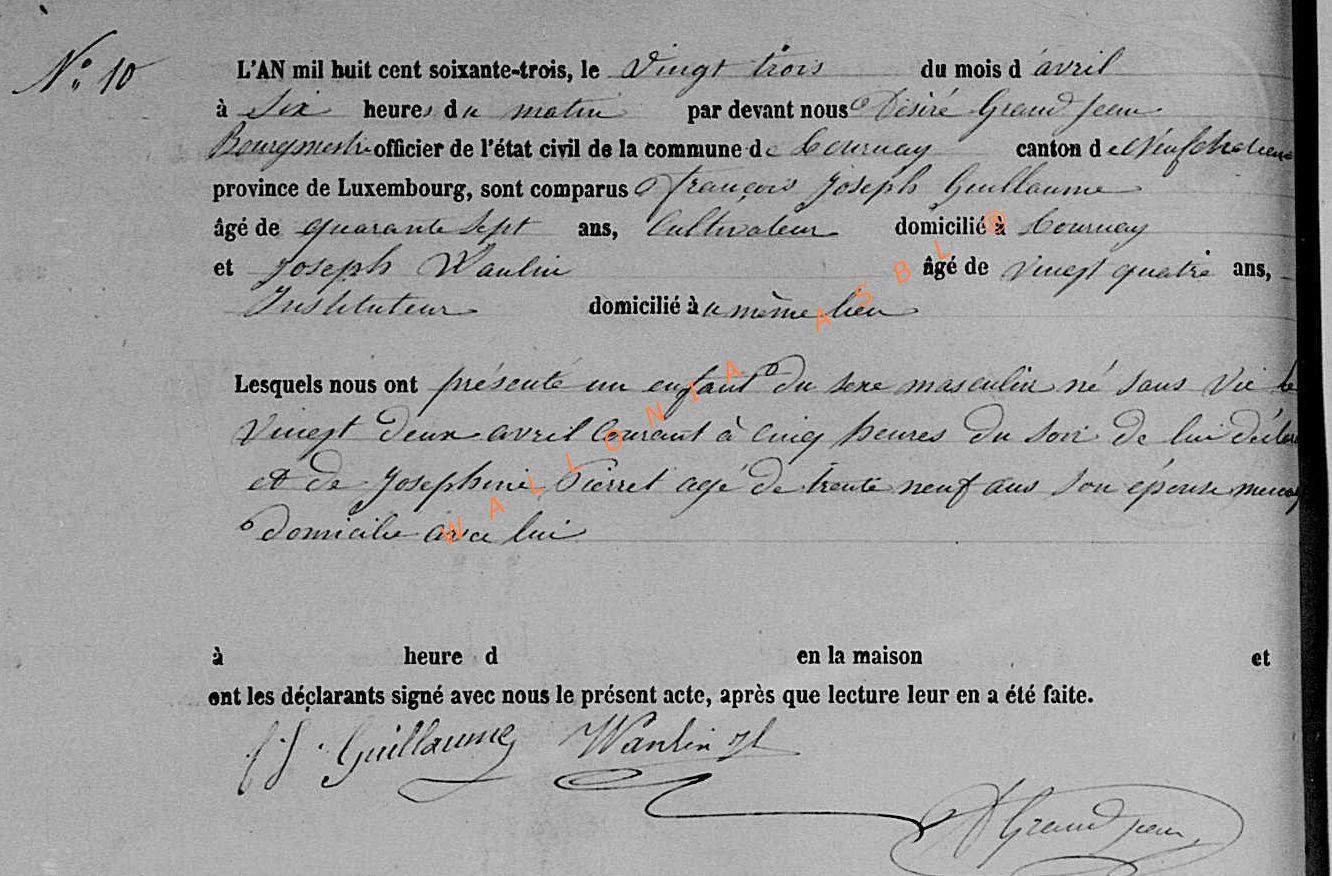 N° 10
L'AN mil huit cent soixante-trois, le Vingt trois du mois d'avril
à Six heures du matin par devant nous Désiré Grand Jean
Bourgmestre officier de l'état civil de la commune de Tournay canton de Neufchateau
province de Luxembourg, sont comparus François Joseph Guillaume
âgé de quarante sept ans, Cultivateur domicilié à Tournay
et Joseph Wanlin âgé de vingt quatre ans,
Instituteur domicilié au même lieu
Lesquels nous ont présenté un enfant du sexe masculin né sans vie le
Vingt deux avril Courant à cinq heures du soir de lui
et de Josephine Pierret agé de trente neuf ans son épouse
domicilie avec lui
à heure d en la maison et
ont les déclarants signé avec nous le présent acte, après que lecture leur en a été faite.
Guillaume Wanlin
D Grand jean
WALLONIA ASBL ®